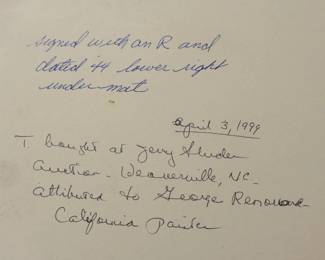 signed with an R and
dated '44 lower right
under mat
April 3, 1999
I bought at Jerry
Auction - Weaverville, NC -
attributed to George
California Painter